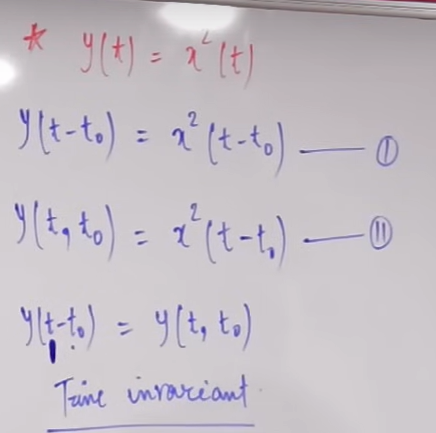 * y(t) = x²(t)
y(t-t₀) = x²(t-t₀) — Ⓘ
y(t, t₀) = x²(t-t₀) — Ⓘⓘ
y(t-t₀) = y(t, t₀)
Time invariant.